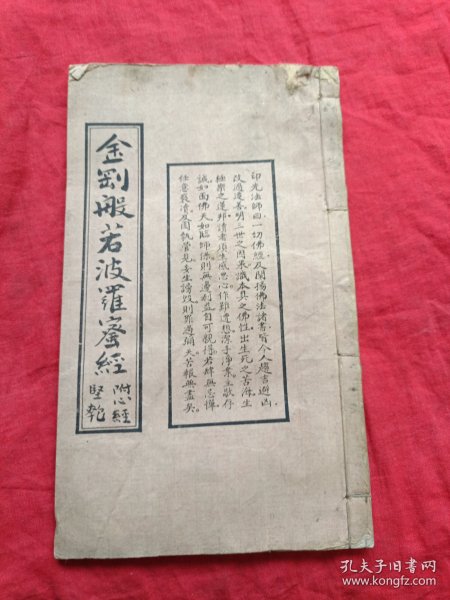 印光法師曰一切佛經及闡揚佛法諸書皆令人趨吉避凶
改過遷善明三世之因果識本具之佛性出生死之苦海生
極樂之蓮邦讀者須生感恩心作難遭想潔手淨案主敬存
誠如面佛天如臨師保則無邊利益自可親得若肆無忌憚
任意褻瀆及固執管見妄生謗毀則罪過彌天苦報無盡矣
金剛般若波羅蜜經
附心經
堅匏
孔夫子旧书网
www.kongfz.com